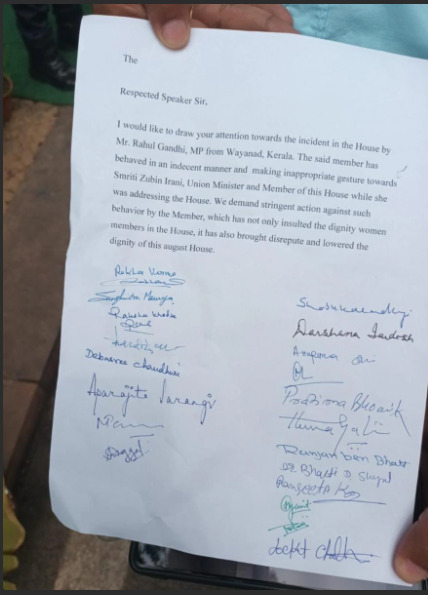 The
Respected Speaker Sir,
I would like to draw your attention towards the incident in the House by
Mr. Rahul Gandhi, MP from Wayanad, Kerala. The said member has
behaved in an indecent manner and making inappropriate gesture towards
Smriti Zubin Irani, Union Minister and Member of this House while she
was addressing the House. We demand stringent action against such
behavior by the Member, which has not only insulted the dignity women
members in the House, it has also brought disrepute and lowered the
dignity of this august House.
Rekha Verma
Sanghmitra Maurya
Debasree Chaudhuri
Aparajita Sarangi
Darshana Jardosh
Pratima Bhoumik
Ranjan ben Bhatt
Dr Bharti D. Shyal
Locket